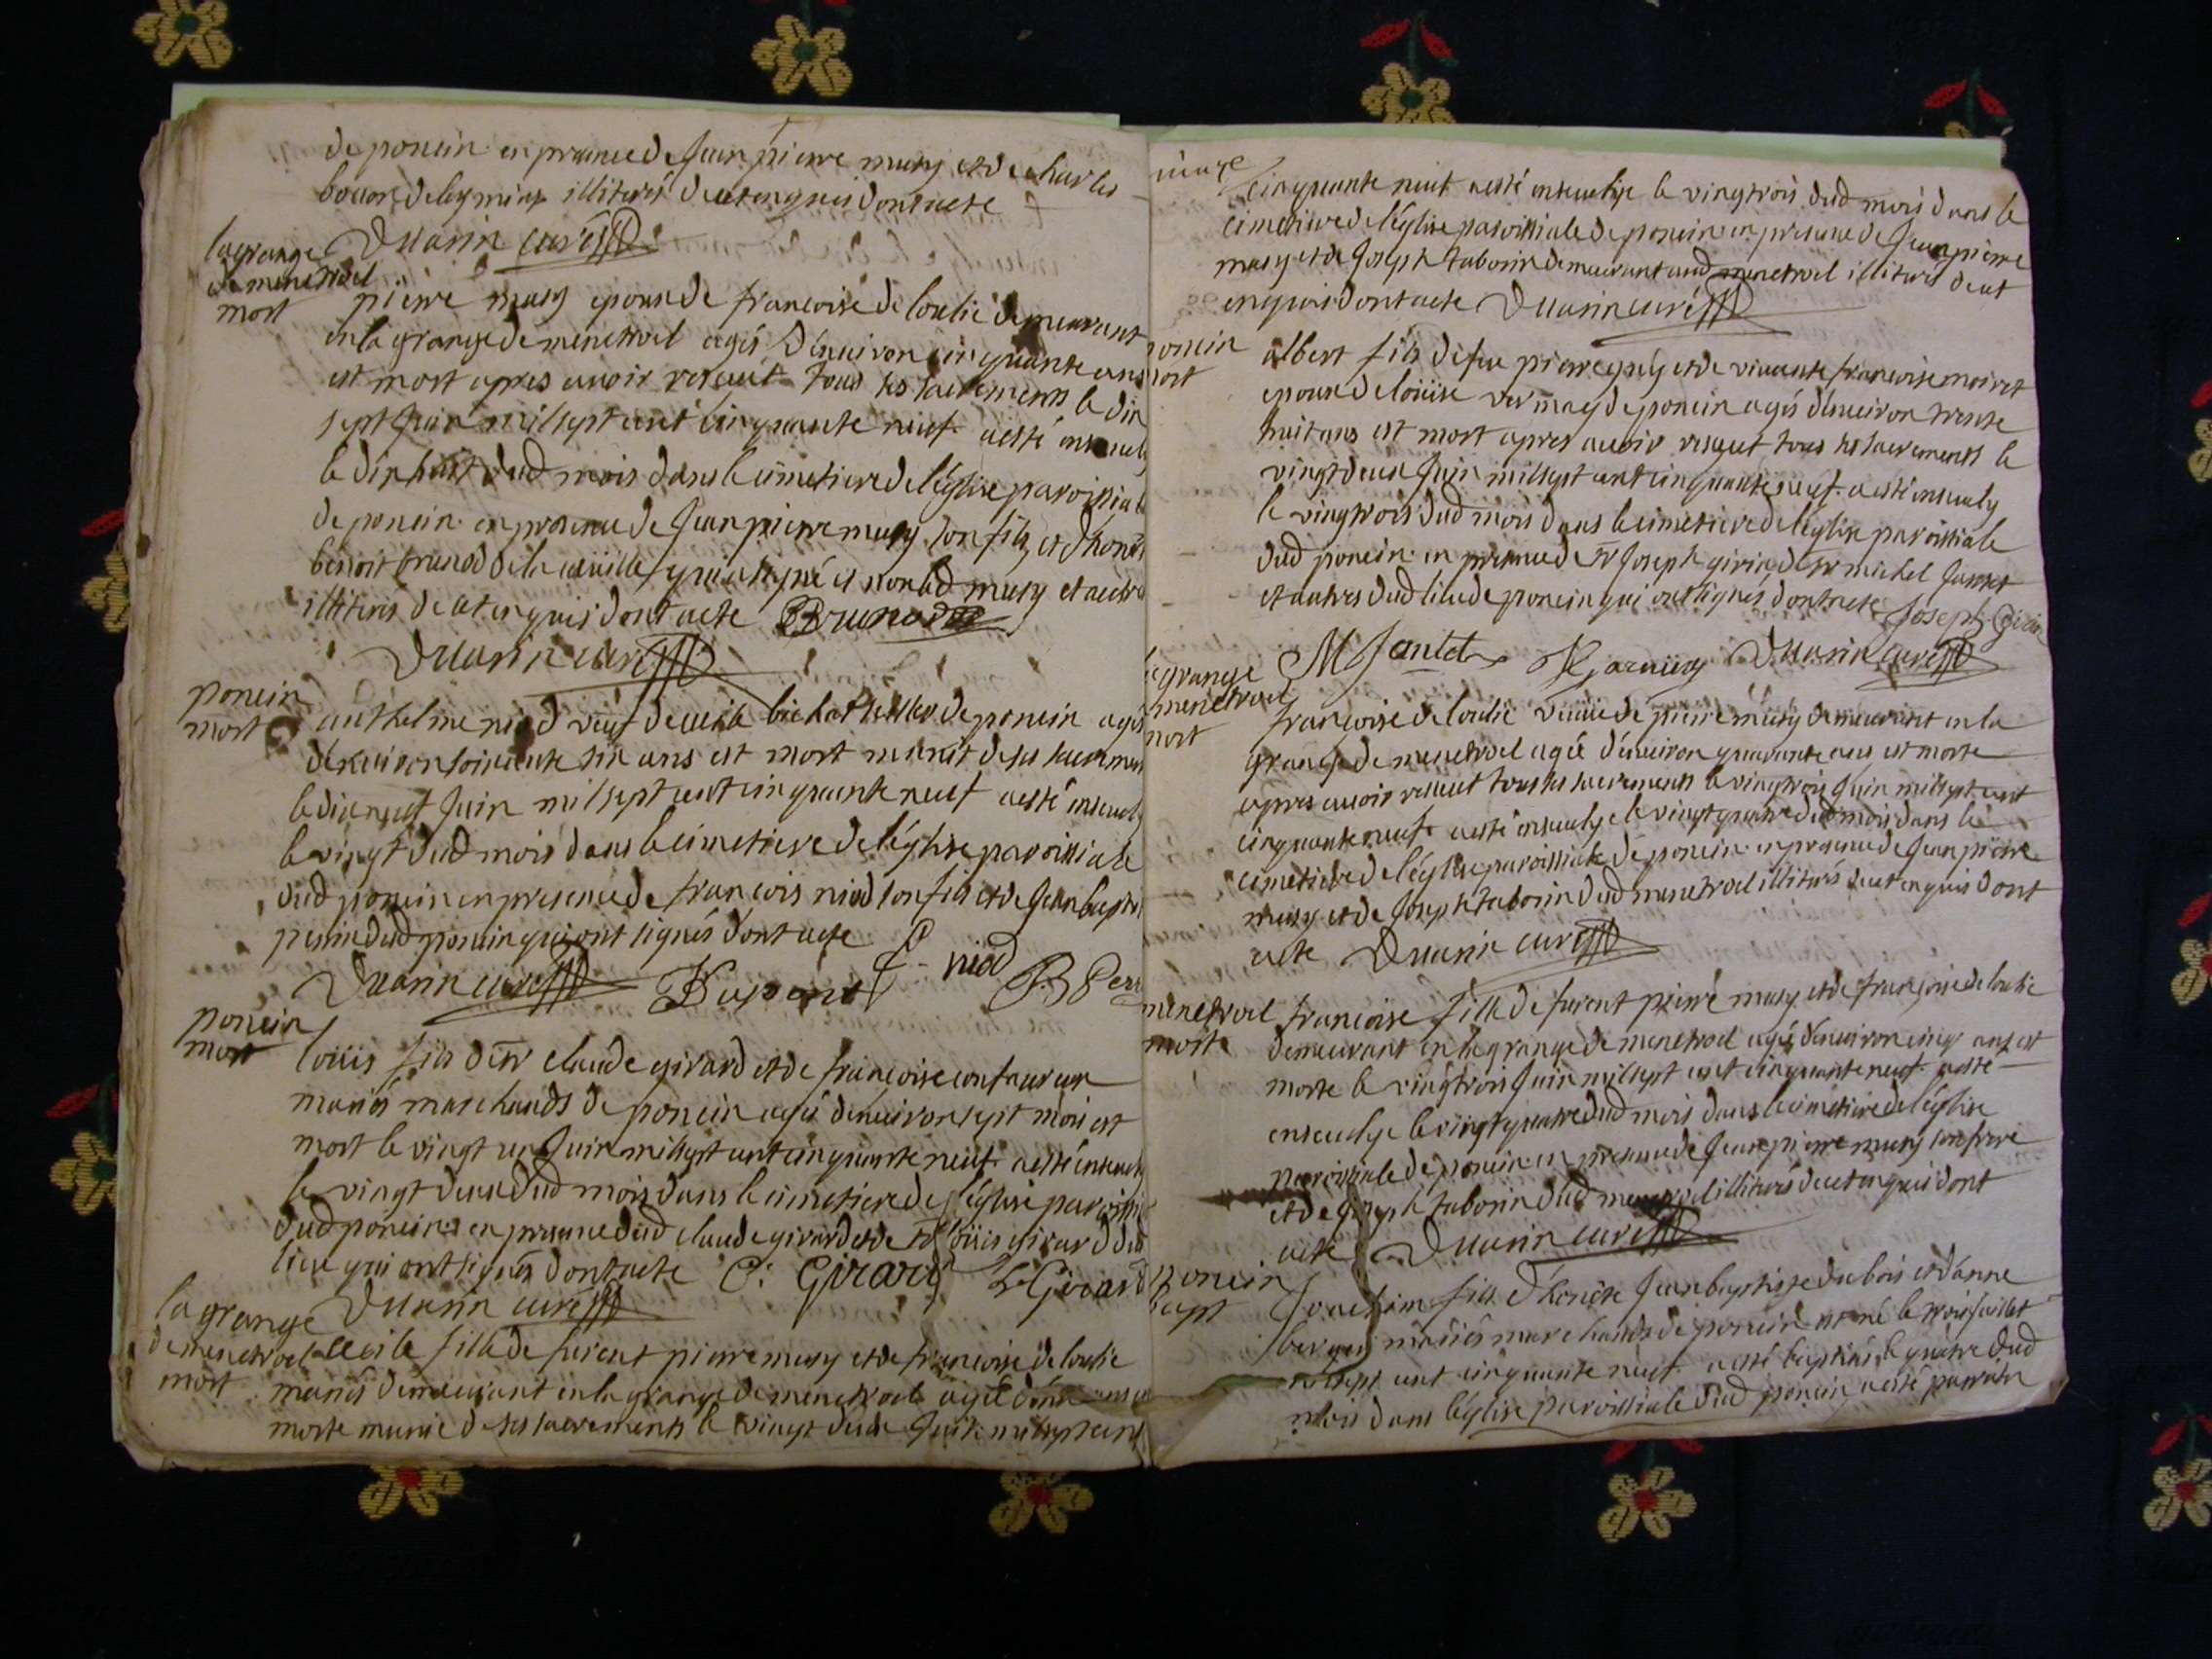 de poncin en presence de Jean pierre musy et de charles
de leymiat illiterés de ce enquis dont acte
Duarin curé
lagrange
de menetruel
mort
pierre musy epoux de francoise de loulie demeurant
en la grange de menetruel agés d'enuiron cinquante ans
est mort apres auoir reseut tous ses sacrements le dix
sept Juin mil sept cent cinquante neuf a esté enseuely
le dix huit dud mois dans le cimetiere de l'églize paroissiale
de poncin en presence de Jean pierre musy son fils, et d'honete
benoit brunod de la qui a signé et non led musy et autres
illiterés de ce enquis dont acte Brunod
Duarin curé
poncin
mort
anthelme niod veuf de cecile bichat de poncin agés
d'enuiron soixante six ans est mort munit de ses sacrements
le dixneuf Juin mil sept cent cinquante neuf a esté enseuely
le vingt dud mois dans le cimetiere de l'églize paroissiale
dud poncin en presence de francois niod son fils et de Jean baptiste
perrin dud poncin qui ont signés dont acte
niod
Duarin curé
Dupont
poncin
mort
loüis fils de sr claude girard et de francoise
mariés marchands de poncin agé d'enuiron sept mois est
mort le vingt un Juin mil sept cent cinquante neuf a esté enseuely
le vingt deux dud mois dans le cimetiere de l'églize paroissiale
dud poncin en presence dud claude girard et de sr loüis girard dud
lieu qui ont signés dont acte C: Girard L Girard
Duarin curé
la grange
de menetruel
mort
cecile fille de furent pierre musy et de francoise de loulie
mariés demeurant en la grange de menetruel agée
morte munie de ses sacrements le vingt deux Juin mil sept cent
cinquante neuf a esté enseuelye le vingtrois dud mois dans le
cimetiere de l'églize paroissiale de poncin en presence de Jean pierre
musy et de Joseph taborin demeurant aud menetruel illiterés de ce
enquis dont acte Duarin curé
poncin
mort
albert fils de feu pierre et de viuante francoise moiret
epoux de loüise de poncin agés d'enuiron trente
huit ans est mort apres auoir reseut tous ses sacrements le
vingt deux Juin mil sept cent cinquante neuf a esté enseuely
le vingtrois dud mois dans le cimetiere de l'églize paroissiale
dud poncin en presence de sr Joseph girin, de sr michel Jantet
et autres dud lieu de poncin qui ont signés dont acte Joseph Girin
M Jantet Duarin curé
la grange
menetruel
mort
francoise de loulie veuue de pierre musy demeurant en la
grange de menetruel agée d'enuiron quarante ans est morte
apres auoir reseut tous ses sacrements le vingtrois Juin mil sept cent
cinquante neuf a esté enseuelye le vingt quatre dud mois dans le
cimetiere de l'églize paroissiale de poncin en presence de Jean pierre
musy et de Joseph taborin dud menetruel illiterés de ce enquis dont
acte Duarin curé
menetruel
morte
francoise fille de furent pierre musy et de francoise de loulie
demeurant en la grange de menetruel agée d'enuiron cinq ans est
morte le vingtrois Juin mil sept cent cinquante neuf a esté
enseuelye le vingt quatre dud mois dans le cimetiere de l'églize
paroissiale de poncin en presence de Jean pierre musy son frere
et de Joseph taborin dud menetruel illiterés de ce enquis dont
acte Duarin curé
poncin
bapt
Joachim fils d'honete Jean baptiste dubois et d'anne
berger mariés marchands de poncin est né le trois Juillet
mil sept cent cinquante neuf a esté baptisés le quatre dud
mois dans l'églize paroissiale dud poncin a esté parrain